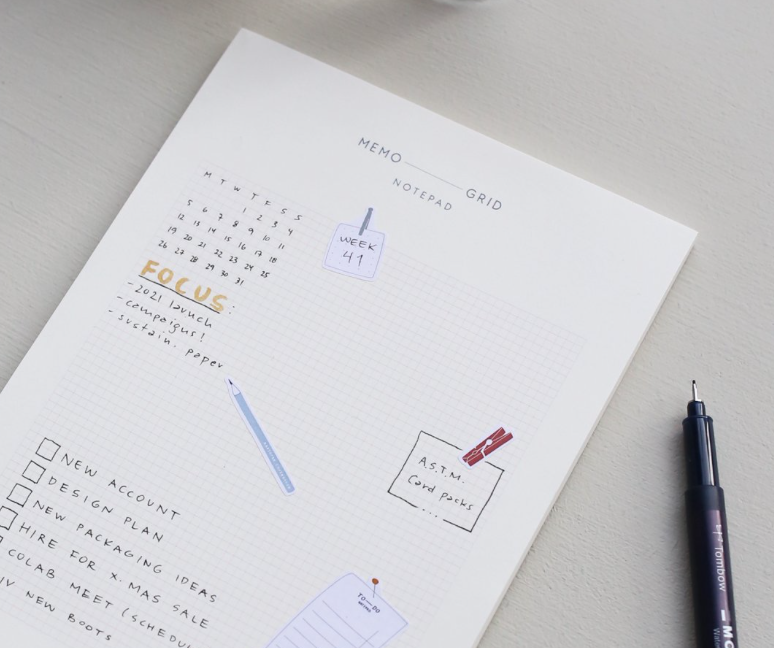 MEMO GRID
NOTEPAD
M T W T F S S
1 2 3 4
5 6 7 8 9 10 11
12 13 14 15 16 17 18
19 20 21 22 23 24 25
26 27 28 29 30 31
WEEK
41
FOCUS:
-2021 launch
-campaigns!
-sustain. paper
A.S.T.M.
Card packs
...
NEW ACCOUNT
DESIGN PLAN
NEW PACKAGING IDEAS
HIRE FOR X-MAS SALE
COLAB MEET (SCHEDU
NEW BOOTS
TO-DO
by Tombow